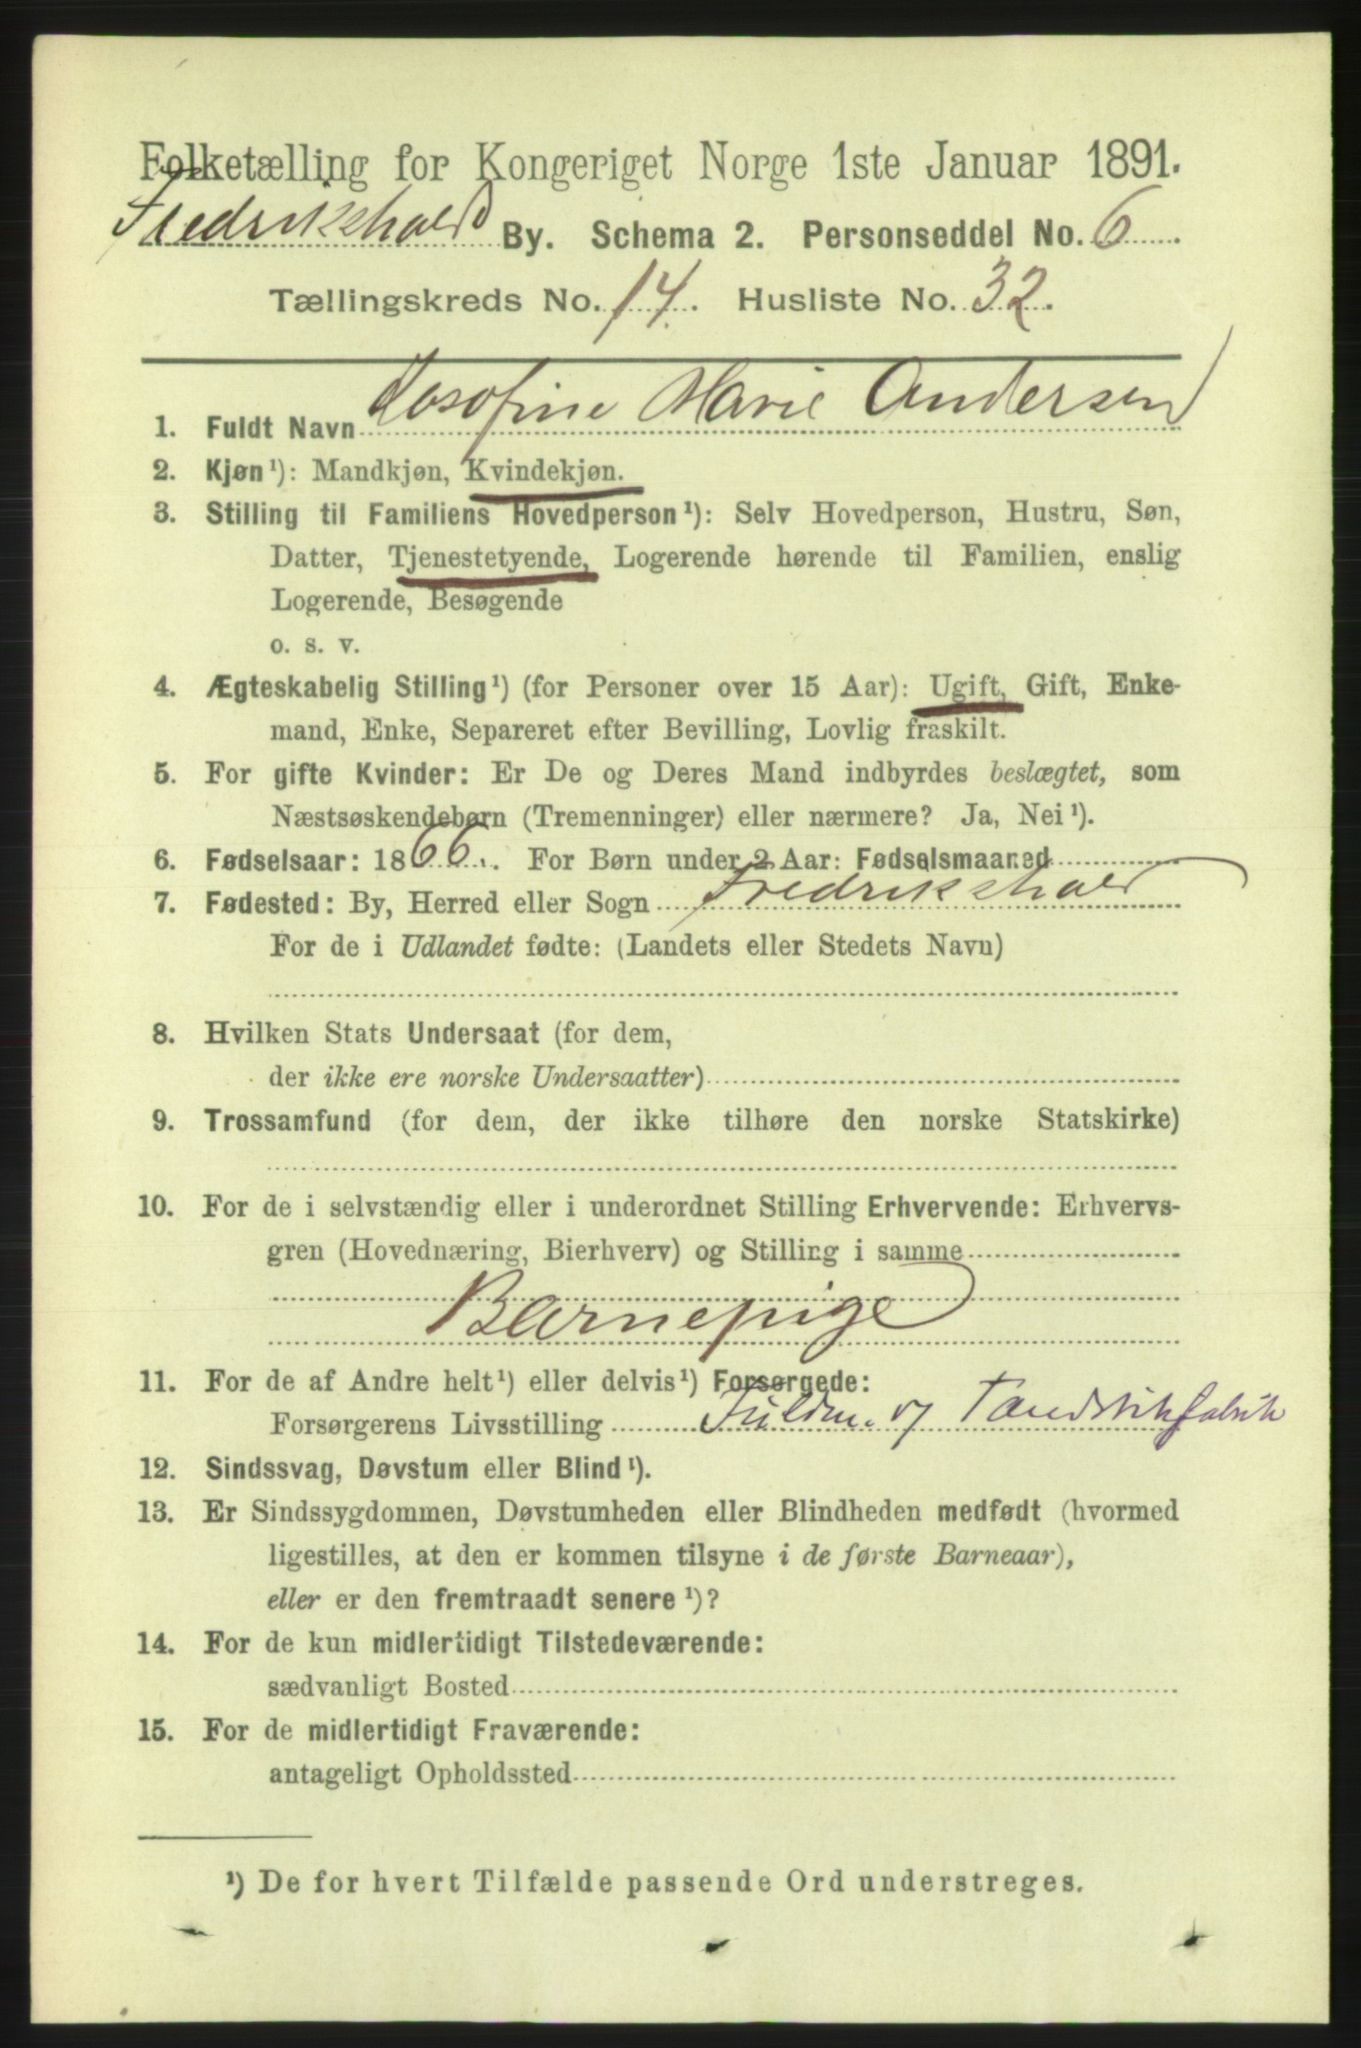 Folketælling for Kongeriget Norge 1ste Januar 1891.
Fredrikshald By. Schema 2. Personseddel No. 6
Tællingskreds No. 14. Husliste No. 32.
1. Fuldt Navn Josofine Marie Andersen
2. Kjøn¹): Mandkjøn, Kvindekjøn.
3. Stilling til Familiens Hovedperson¹): Selv Hovedperson, Hustru, Søn,
Datter, Tjenestetyende, Logerende hørende til Familien, enslig
Logerende, Besøgende
o. s. v.
4. Ægteskabelig Stilling¹) (for Personer over 15 Aar): Ugift, Gift, Enke-
mand, Enke, Separeret efter Bevilling, Lovlig fraskilt.
5. For gifte Kvinder: Er De og Deres Mand indbyrdes beslægtet, som
Næstsøskendebørn (Tremenninger) eller nærmere? Ja, Nei¹).
6. Fødselsaar: 1866. For Børn under 2 Aar: Fødselsmaaned
7. Fødested: By, Herred eller Sogn Fredrikshald
For de i Udlandet fødte: (Landets eller Stedets Navn)
8. Hvilken Stats Undersaat (for dem,
der ikke ere norske Undersaatter)
9. Trossamfund (for dem, der ikke tilhøre den norske Statskirke)
10. For de i selvstændig eller i underordnet Stilling Erhvervende: Erhvervs-
gren (Hovednæring, Bierhverv) og Stilling i samme
Barnepige
11. For de af Andre helt¹) eller delvis¹) Forsørgede:
Forsørgerens Livsstilling Fuldm. v/ Tændstikfabrik
12. Sindssvag, Døvstum eller Blind¹).
13. Er Sindssygdommen, Døvstumheden eller Blindheden medfødt (hvormed
ligestilles, at den er kommen tilsyne i de første Barneaar),
eller er den fremtraadt senere¹)?
14. For de kun midlertidigt Tilstedeværende:
sædvanligt Bosted
15. For de midlertidigt Fraværende:
antageligt Opholdssted
¹) De for hvert Tilfælde passende Ord understreges.